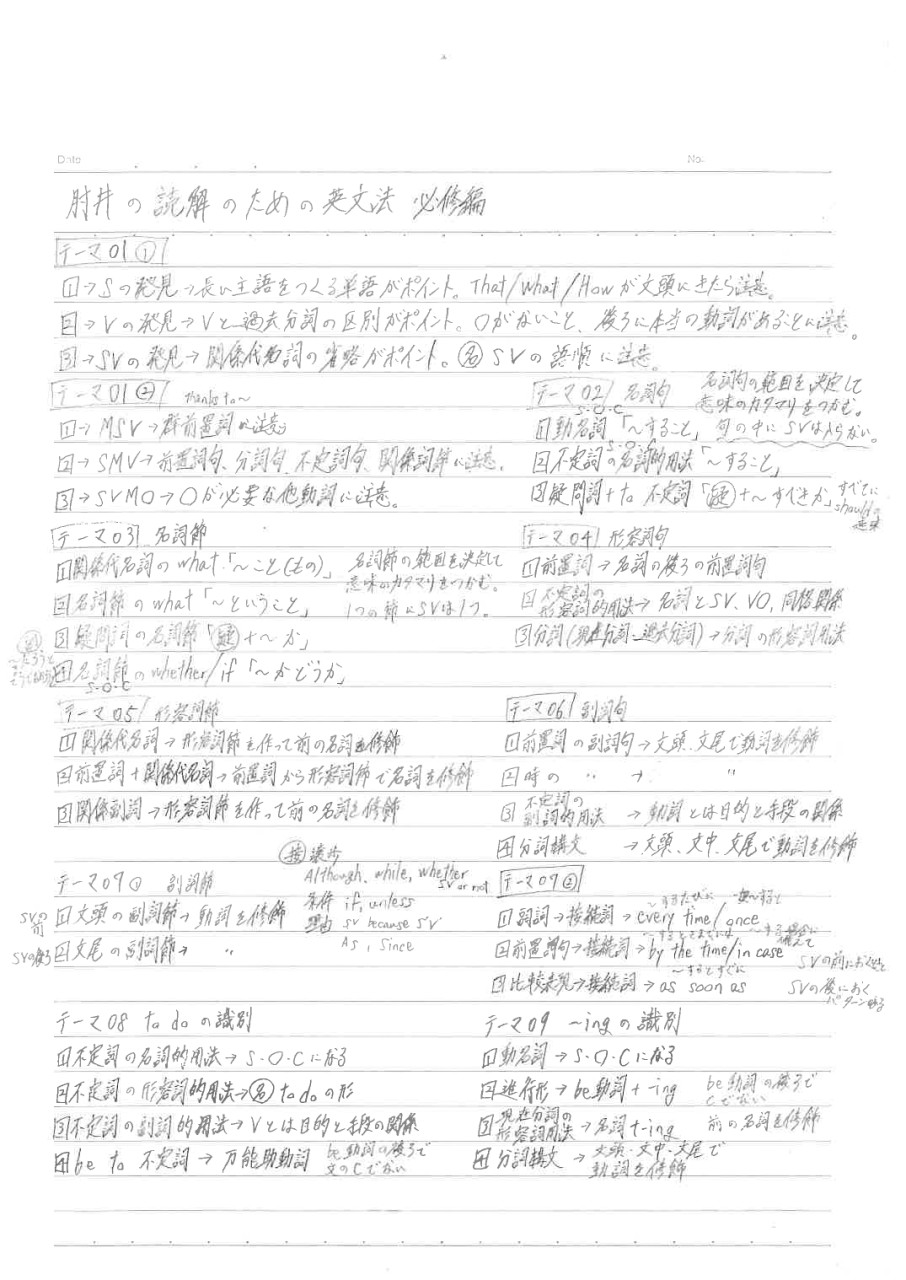 Date
No.
肘井の読解のための英文法 必修編
テーマ01①
1→Sの発見→長い主語をつくる単語がポイント。That/What/Howが文頭にきたら注意。
2→Vの発見→Vと過去分詞の区別がポイント。Oがないこと、後ろに本当の動詞があることに注意。
3→SVの発見→関係代名詞の省略がポイント。名SVの語順に注意。
テーマ01② thanks to~
1→MSV→群前置詞に注意
2→SMV→前置詞句、分詞句、不定詞句、関係詞節に注意。
3→SVMO→Oが必要な他動詞に注意。
テーマ02 名詞句 名詞句の範囲を決定して
意味のカタマリをつかむ。
S・O・C
1動名詞「~すること」 句の中にSVは入らない。
S・O・C
2不定詞の名詞的用法「~すること」
3疑問詞+to 不定詞「疑+~すべきか」 すべてに
shouldの
意味
テーマ03 名詞節
1関係代名詞のwhat「~こと(もの)」 名詞節の範囲を決定して
意味のカタマリをつかむ。
2名詞節のwhat「~ということ」 1つの節にSVは1つ。
3疑問詞の名詞節「疑+~か」
4名詞節のwhether/if「~かどうか」
S・O・C
~だろうと
テーマ04 形容詞句
1前置詞→名詞の後ろの前置詞句
2不定詞の
形容詞的用法→名詞とSV、VO、同格関係
3分詞(現在分詞・過去分詞)→分詞の形容詞用法
テーマ05 形容詞節
1関係代名詞→形容詞節を作って前の名詞を修飾
2前置詞+関係代名詞→前置詞から形容詞節で名詞を修飾
3関係副詞→形容詞節を作って前の名詞を修飾
テーマ06 副詞句
1前置詞の副詞句→文頭、文尾で動詞を修飾
2時の 〃 → 〃
3不定詞の
副詞的用法 →動詞とは目的と手段の関係
4分詞構文 →文頭、文中、文尾で動詞を修飾
テーマ07① 副詞節
接 譲歩
Although, while, whether
SV or not
条件 if, unless
理由 SV because SV
As, Since
SVの
前
1文頭の副詞節→動詞を修飾
SVの後ろ
2文尾の副詞節→ 〃
テーマ07②
~するたびに 一度~すると
1副詞→接続詞→every time/once
~するときまでには ~する場合に
備えて
2前置詞句→接続詞→by the time/in case
~するとすぐに
3比較表現→接続詞→as soon as
SVの前におくものと
SVの後におく
パターンある
テーマ08 to do の識別
1不定詞の名詞的用法→S・O・Cになる
2不定詞の形容詞的用法→名to doの形
3不定詞の副詞的用法→Vとは目的と手段の関係
4be to 不定詞→万能助動詞 be動詞の後ろで
文のCでない
テーマ09 ~ingの識別
1動名詞→S・O・Cになる
2進行形→be動詞+-ing be動詞の後ろで
Cでない
3現在分詞の
形容詞用法→名詞+-ing 前の名詞を修飾
4分詞構文→文頭・文中・文尾で
動詞を修飾